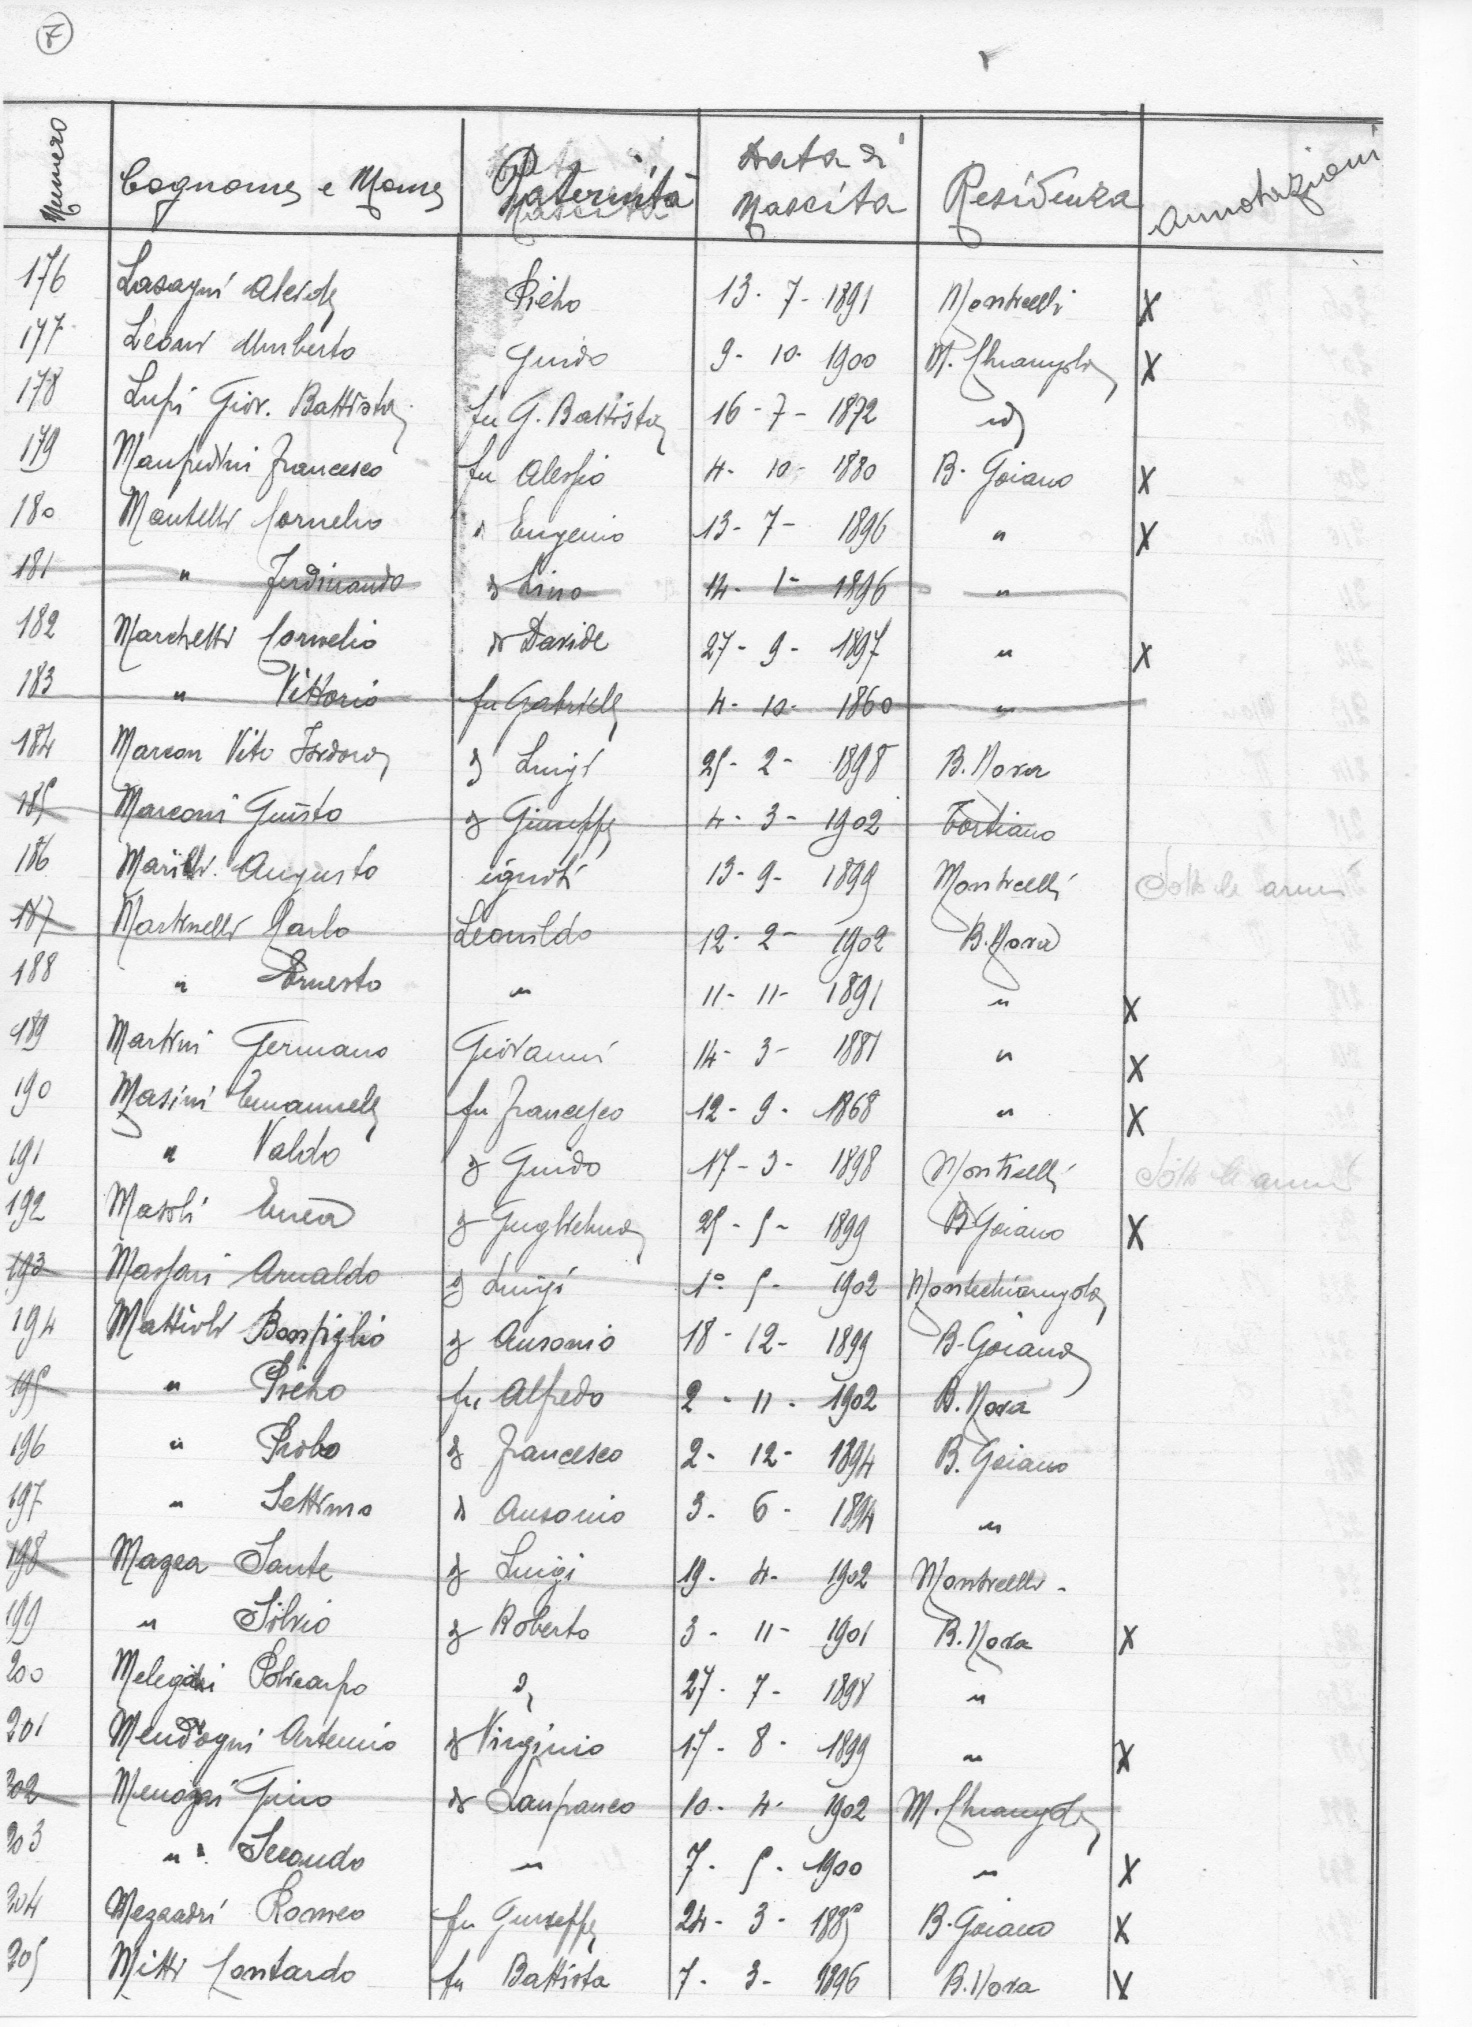 7
Numero Cognome e Nome Paternità Data di Nascita Residenza Annotazioni
176 Lasagni Alcide Pietro 13-7-1891 Monticelli X
177 Leoni Umberto Guido 9-10-1900 M. Chiarugolo X
178 Lupi Giov. Battista fu G. Battista 16-7-1872 id
179 Manfredini Francesco fu Alessio 4-10-1880 B. Gaiano X
180 Mantelli Cornelio di Eugenio 13-7-1896 " X
181 " Ferdinando di Lino 14-1-1896 "
182 Marchetti Cornelio di Davide 27-9-1897 " X
183 " Vittorio fu Gabriele 4-10-1860 "
184 Marcon Vito di Luigi 25-2-1898 B. Nova
185 Marconi Giusto di Giuseppe 4-3-1902 Tortiano
186 Augusto ignoti 13-9-1899 Monticelli Sotto le armi
187 Martinelli Carlo Leonildo 12-2-1902 B. Nova
188 " Ernesto " 11-11-1891 " X
189 Martini Germano Giovanni 14-3-1881 " X
190 Masini Emanuele fu Francesco 12-9-1868 " X
191 " Valdo di Guido 17-3-1898 Monticelli Sotto le armi
192 Masoli Enea di Guglielmo 25-5-1899 B Gaiano X
193 Massari Arnaldo di Luigi 1°-5-1902 Montechiarugolo
194 Mattioli Bonfiglio di Ausonio 18-12-1899 B-Gaiano
195 " Pietro fu Alfredo 2-11-1902 B. Nova
196 " Probo di Francesco 2-12-1894 B. Gaiano
197 " Settimo di Ausonio 3-6-1894 "
198 Mazza Sante di Luigi 19-4-1902 Monticelli-
199 " Silvio di Roberto 3-11-1901 B. Nova X
200 Melegari Policarpo di 27-7-1898 "
201 Mendogni Artemio di Virginio 17-8-1899 " X
202 Menozzi Gino di Lanfranco 10-4-1902 M. Chiarugolo
203 " Secondo " 7-5-1900 " X
204 Mezzadri Romeo fu Giuseppe 24-3-1885 B. Gaiano X
205 Mitti Contardo fu Battista 7-3-1896 B. Nova X